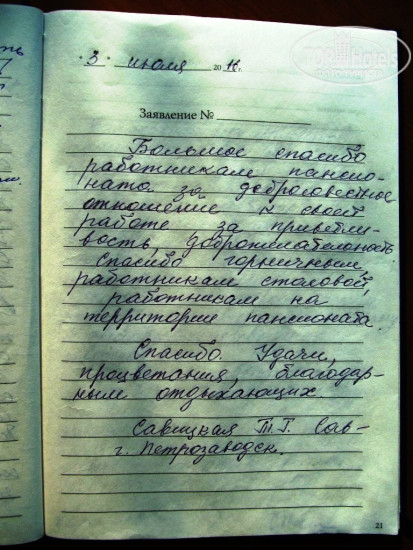 "3" июля 2016г.
Заявление №
Большое спасибо
работникам пансио-
ната за добросовестное
отношение к своей
работе за приветли-
вость, доброжелательность
Спасибо горничным,
работникам столовой,
работникам на
территории пансионата.
Спасибо. Удачи,
процветания, благодар-
ным отдыхающих.
Савицкая Т.Г.
г. Петрозаводск.
21